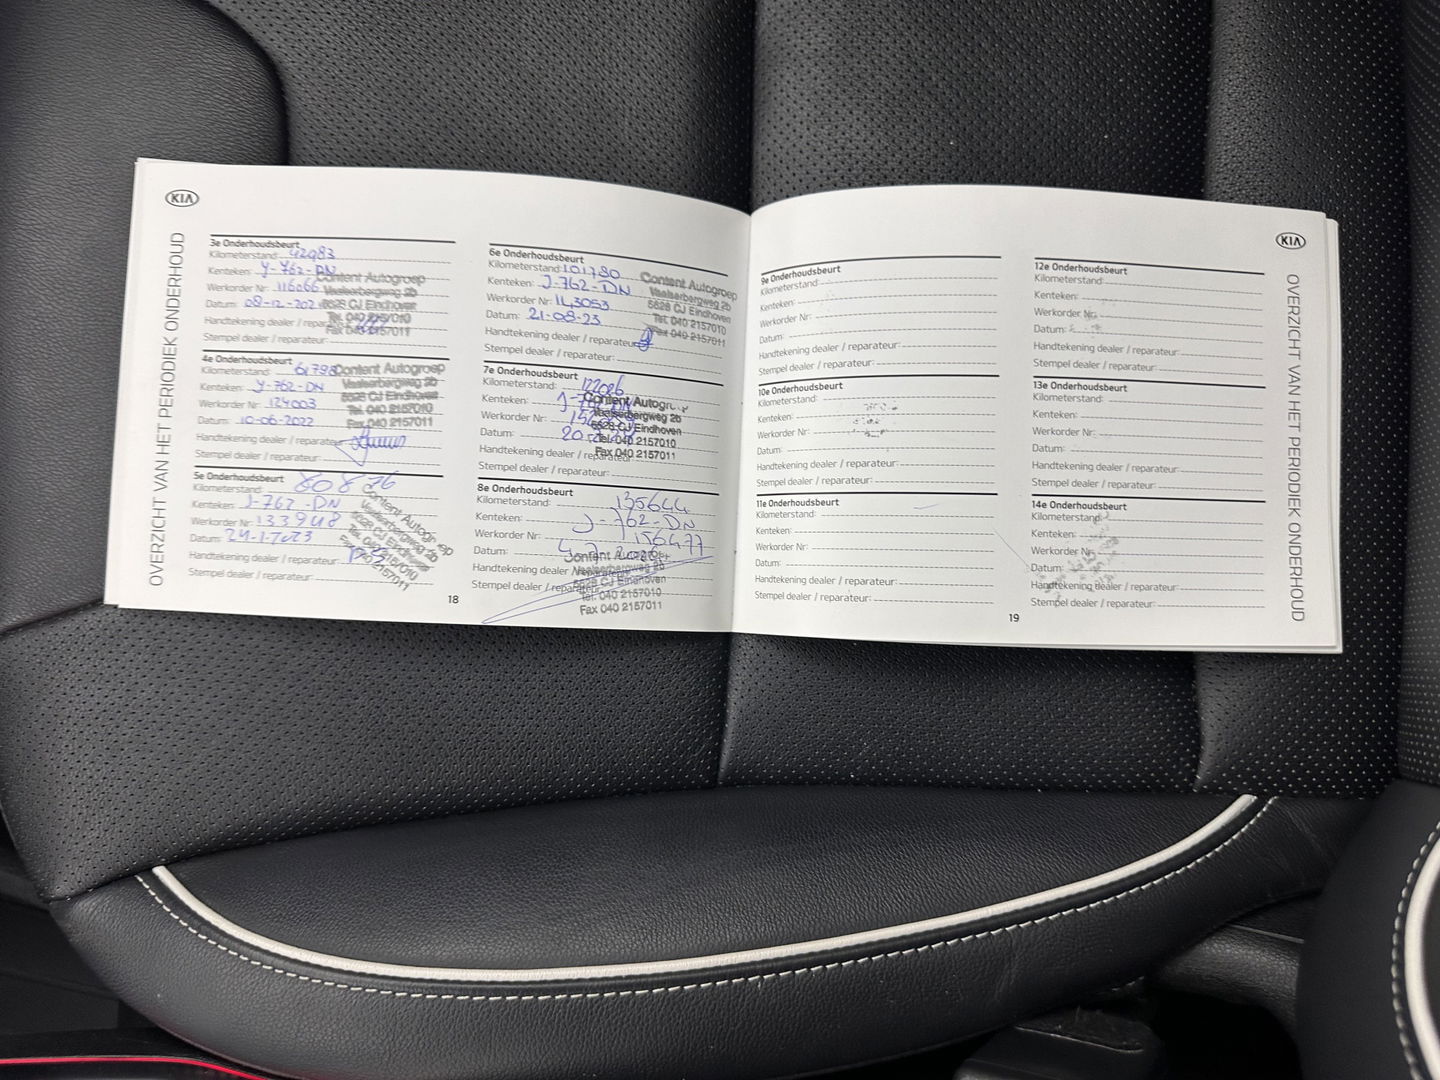 KIA
OVERZICHT VAN HET PERIODIEK ONDERHOUD
3e Onderhoudsbeurt
Kilometerstand: 42983
Kenteken: J-762-DN
Werkorder Nr: 116066
Datum: 08-12-202
Handtekening dealer / reparateur:
Stempel dealer / reparateur:
Content Autogroep
Vaalserbergweg 2b
5628 CJ Eindhoven
Tel. 040 2157010
Fax 040 2157011
4e Onderhoudsbeurt
Kilometerstand: 61798
Kenteken: J-762-DN
Werkorder Nr: 124003
Datum: 10-06-2022
Handtekening dealer / reparateur:
Stempel dealer / reparateur:
Content Autogroep
Vaalserbergweg 2b
5628 CJ Eindhoven
Tel. 040 2157010
Fax 040 2157011
5e Onderhoudsbeurt
Kilometerstand: 80876
Kenteken: J-762-DN
Werkorder Nr: 133948
Datum: 24-1-2023
Handtekening dealer / reparateur:
Stempel dealer / reparateur:
Content Autogroep
Vaalserbergweg 2b
5628 CJ Eindhoven
Tel. 040 2157010
Fax 040 2157011
6e Onderhoudsbeurt
Kilometerstand: 101780
Kenteken: J-762-DN
Werkorder Nr: 143053
Datum: 21-08-23
Handtekening dealer / reparateur:
Stempel dealer / reparateur:
Content Autogroep
Vaalserbergweg 2b
5628 CJ Eindhoven
Tel. 040 2157010
Fax 040 2157011
7e Onderhoudsbeurt
Kilometerstand: 122026
Kenteken:
Werkorder Nr:
Datum: 20
Handtekening dealer / reparateur:
Stempel dealer / reparateur:
Content Autogr
Vaalserbergweg 2b
5628 CJ Eindhoven
Tel. 040 2157010
Fax 040 2157011
8e Onderhoudsbeurt
Kilometerstand: 135644
Kenteken: J-762-DN
Werkorder Nr: 156477
Datum:
Handtekening dealer / reparateur:
Stempel dealer / reparateur:
Content Autogroep
Vaalserbergweg 2b
5628 CJ Eindhoven
Tel. 040 2157010
Fax 040 2157011
18
9e Onderhoudsbeurt
Kilometerstand:
Kenteken:
Werkorder Nr:
Datum:
Handtekening dealer / reparateur:
Stempel dealer / reparateur:
10e Onderhoudsbeurt
Kilometerstand:
Kenteken:
Werkorder Nr:
Datum:
Handtekening dealer / reparateur:
Stempel dealer / reparateur:
11e Onderhoudsbeurt
Kilometerstand:
Kenteken:
Werkorder Nr:
Datum:
Handtekening dealer / reparateur:
Stempel dealer / reparateur:
12e Onderhoudsbeurt
Kilometerstand:
Kenteken:
Werkorder Nr:
Datum:
Handtekening dealer / reparateur:
Stempel dealer / reparateur:
13e Onderhoudsbeurt
Kilometerstand:
Kenteken:
Werkorder Nr:
Datum:
Handtekening dealer / reparateur:
Stempel dealer / reparateur:
14e Onderhoudsbeurt
Kilometerstand:
Kenteken:
Werkorder Nr:
Datum:
Handtekening dealer / reparateur:
Stempel dealer / reparateur:
19
KIA
OVERZICHT VAN HET PERIODIEK ONDERHOUD